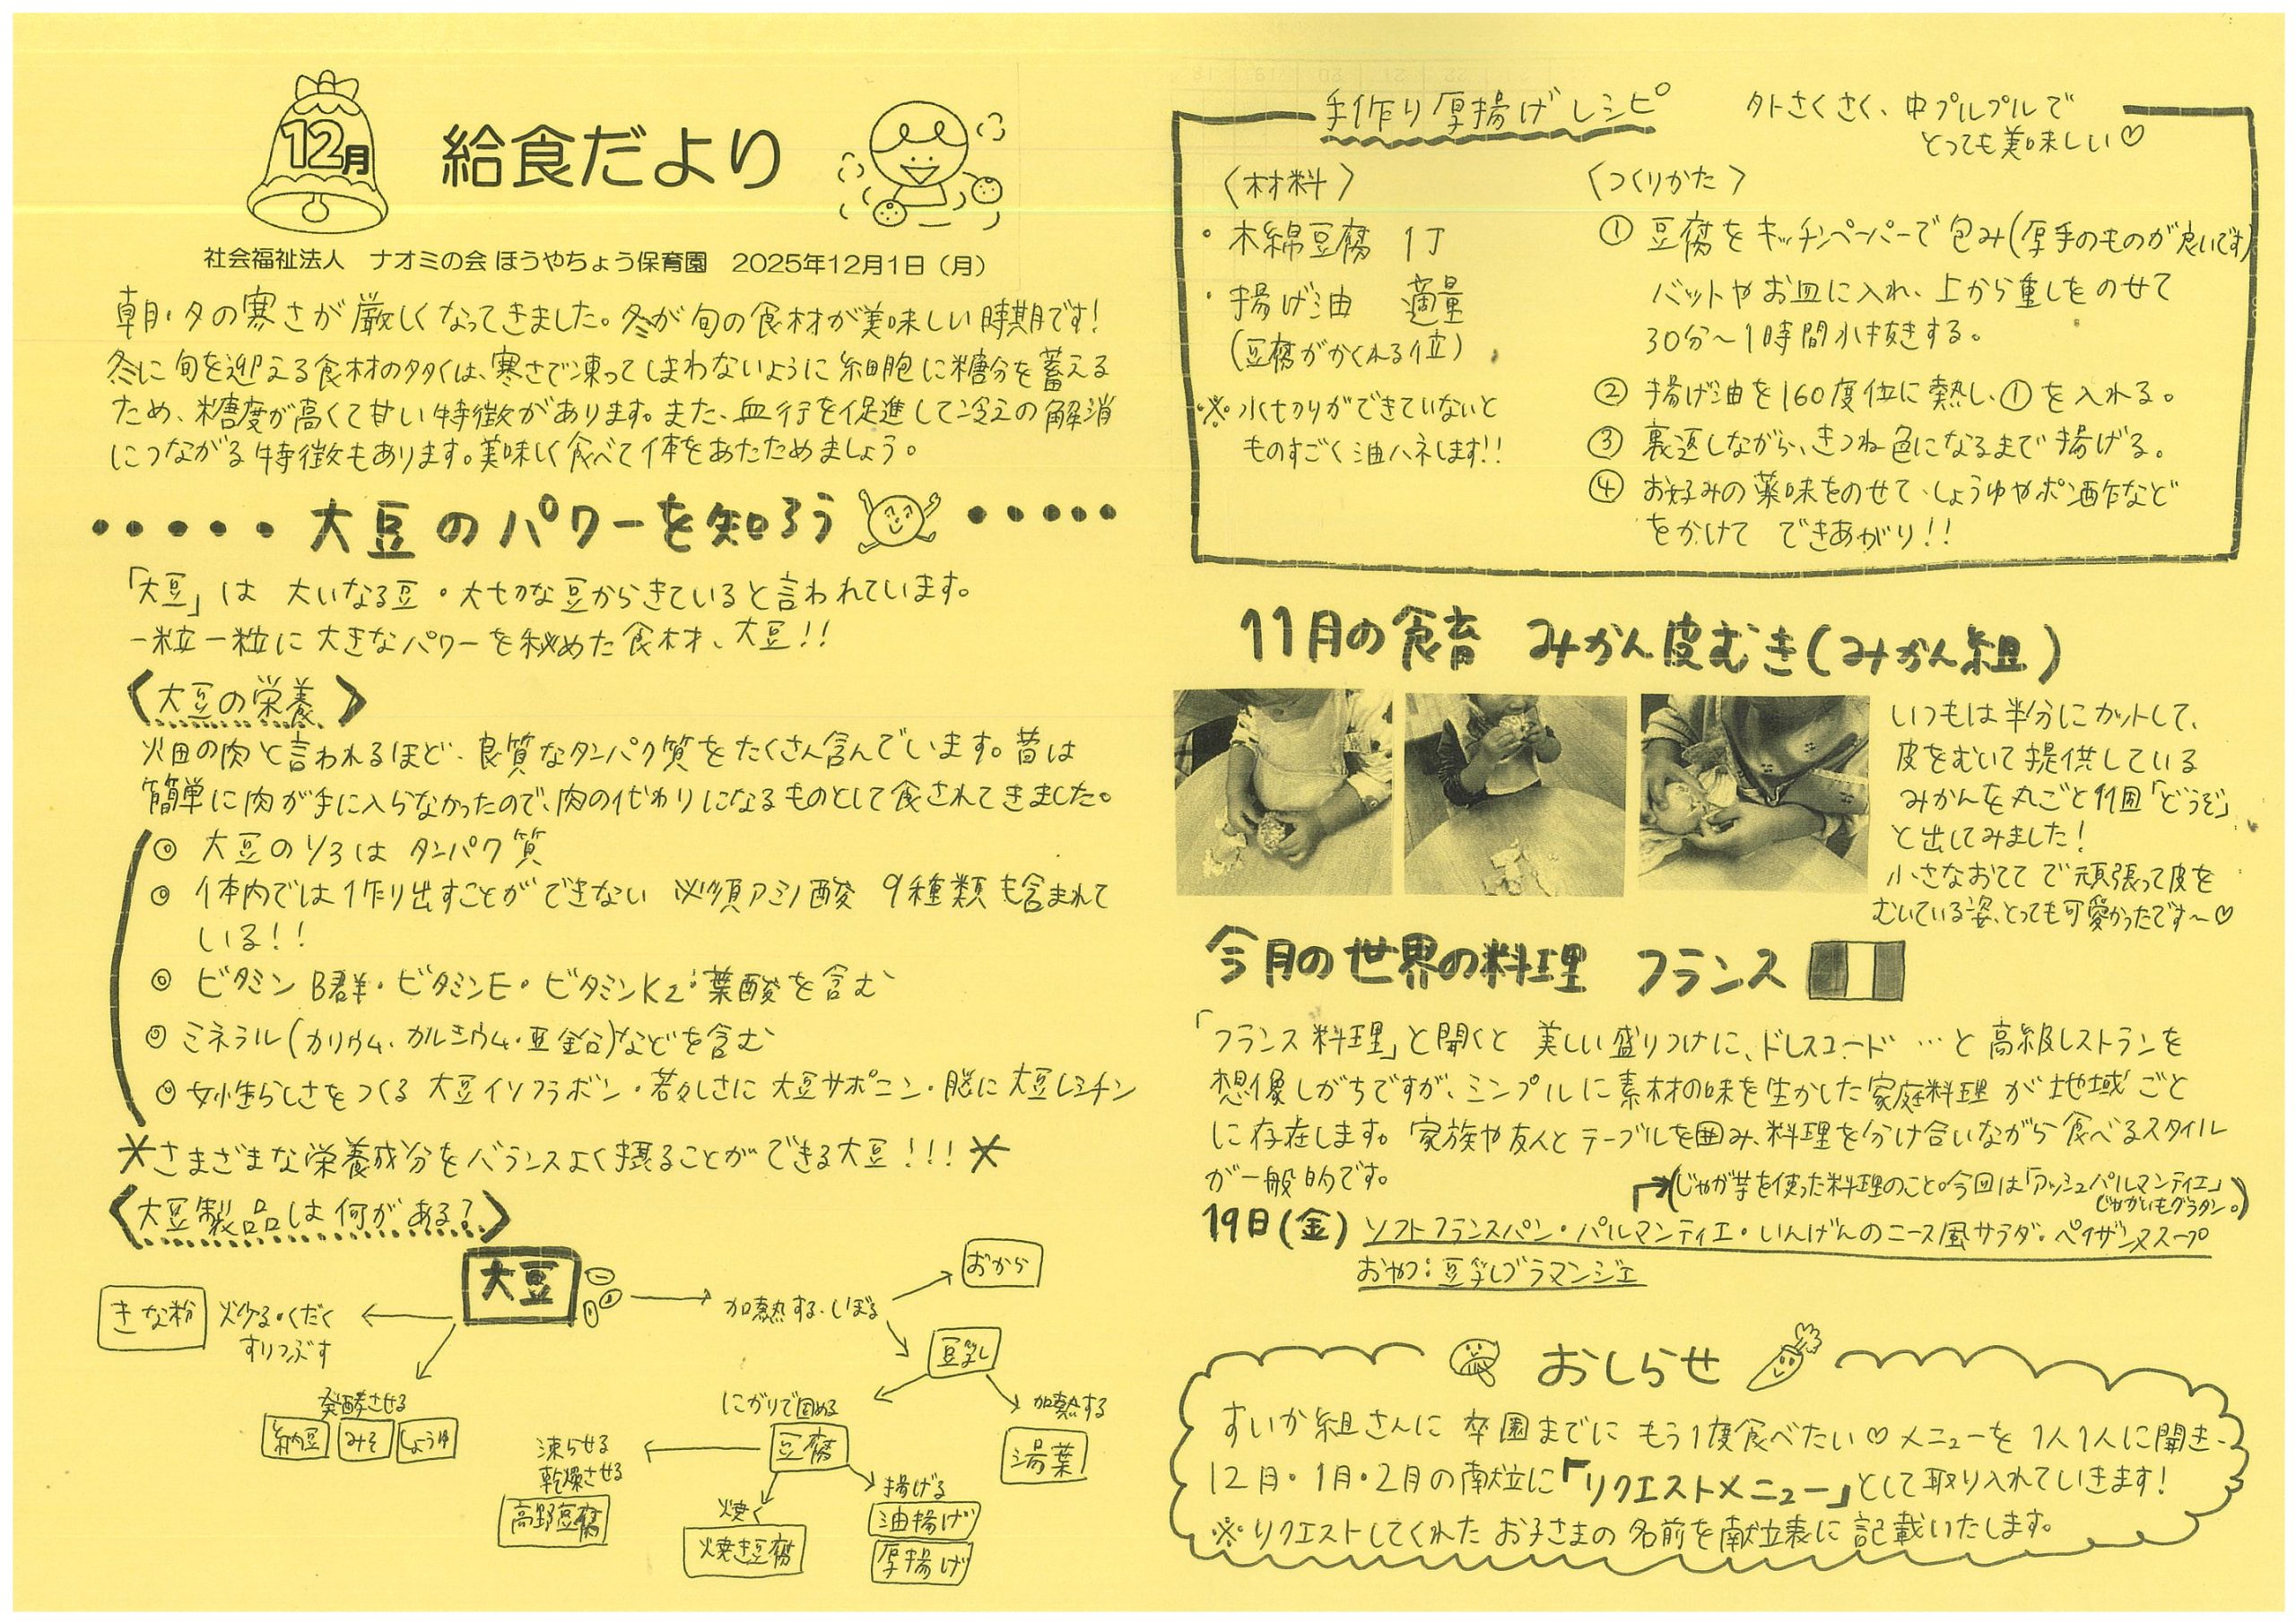 12月
給食だより
社会福祉法人 ナオミの会 ほうやちょう保育園 2025年12月1日（月）
朝・夕の寒さが厳しくなってきました。冬が旬の食材が美味しい時期です！
冬に旬を迎える食材の多くは、寒さで凍ってしまわないように細胞に糖分を蓄える
ため、糖度が高くて甘い特徴があります。また、血行を促進して冷えの解消
につながる特徴もあります。美味しく食べて体をあたためましょう。
大豆のパワーを知ろう
「大豆」は 大いなる豆・大切な豆からきていると言われています。
一粒一粒に大きなパワーを秘めた食材、大豆!!
〈大豆の栄養〉
畑の肉と言われるほど、良質なタンパク質をたくさん含んでいます。昔は
簡単に肉が手に入らなかったので、肉の代わりになるものとして食されてきました。
◎ 大豆の1/3は タンパク質
◎ 体内では作り出すことができない 必須アミノ酸 9種類も含まれて
いる!!
◎ ビタミンB群・ビタミンE・ビタミンK2・葉酸を含む
◎ ミネラル(カリウム、カルシウム・亜鉛)などを含む
◎ 女性らしさをつくる 大豆イソフラボン・若々しさに 大豆サポニン・脳に 大豆レシチン
＊さまざまな栄養成分をバランスよく摂ることができる大豆!!!＊
〈大豆製品は何がある？〉
大豆
きな粉
炒る・くだく
すりつぶす
発酵させる
納豆 みそ しょうゆ
加熱する・しぼる
おから
豆乳
加熱する
湯葉
にがりで固める
豆腐
凍らせる
乾燥させる
高野豆腐
焼く
焼き豆腐
揚げる
油揚げ
厚揚げ
手作り厚揚げレシピ
外さくさく、中プルプルで
とっても美味しい♡
〈材料〉
・木綿豆腐 1丁
・揚げ油 適量
(豆腐がかくれる位)
※水切りができていないと
ものすごく油ハネします!!
〈つくりかた〉
① 豆腐をキッチンペーパーで包み(厚手のものが良いです)
バットやお皿に入れ、上から重しをのせて
30分～1時間水抜きする。
② 揚げ油を160度位に熱し、①を入れる。
③ 裏返しながら、きつね色になるまで揚げる。
④ お好みの薬味をのせて、しょうゆやポン酢など
をかけて できあがり!!
11月の食育 みかん皮むき(みかん組)
いつもは半分にカットして、
皮をむいて提供している
みかんを丸ごと1個「どうぞ」
と出してみました！
小さなおててで頑張って皮を
むいている姿、とっても可愛かったです～♡
今月の世界の料理 フランス
「フランス料理」と聞くと 美しい盛りつけに、ドレスコード …と 高級レストランを
想像しがちですが、シンプルに素材の味を生かした家庭料理が地域ごと
に存在します。家族や友人とテーブルを囲み、料理を分け合いながら食べるスタイル
が一般的です。
(じゃが芋を使った料理のこと。今回は「アッシュパルマンティエ」
じゃがいもグラタン。)
19日(金) ソフトフランスパン・パルマンティエ・いんげんのニース風サラダ・ペイザンヌスープ
おやつ：豆乳ブラマンジェ
おしらせ
すいか組さんに 卒園までに もう1度食べたい♡メニューを 1人1人に聞き、
12月・1月・2月の献立に「リクエストメニュー」として取り入れていきます！
※リクエストしてくれた お子さまの名前を献立表に記載いたします。